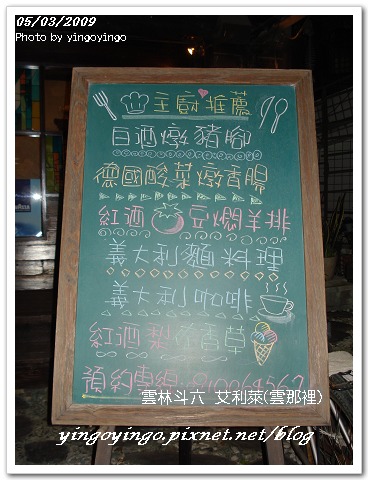 05/03/2009
Photo by yingoyingo
主廚推薦
白酒燉豬腳
德國酸菜燉香腸
紅酒豆燜羊排
義大利麵料理
義大利咖啡
紅酒梨香草
預約專線:
雲林斗六 艾利萊(雲那裡)
yingoyingo.pixnet.net/blog